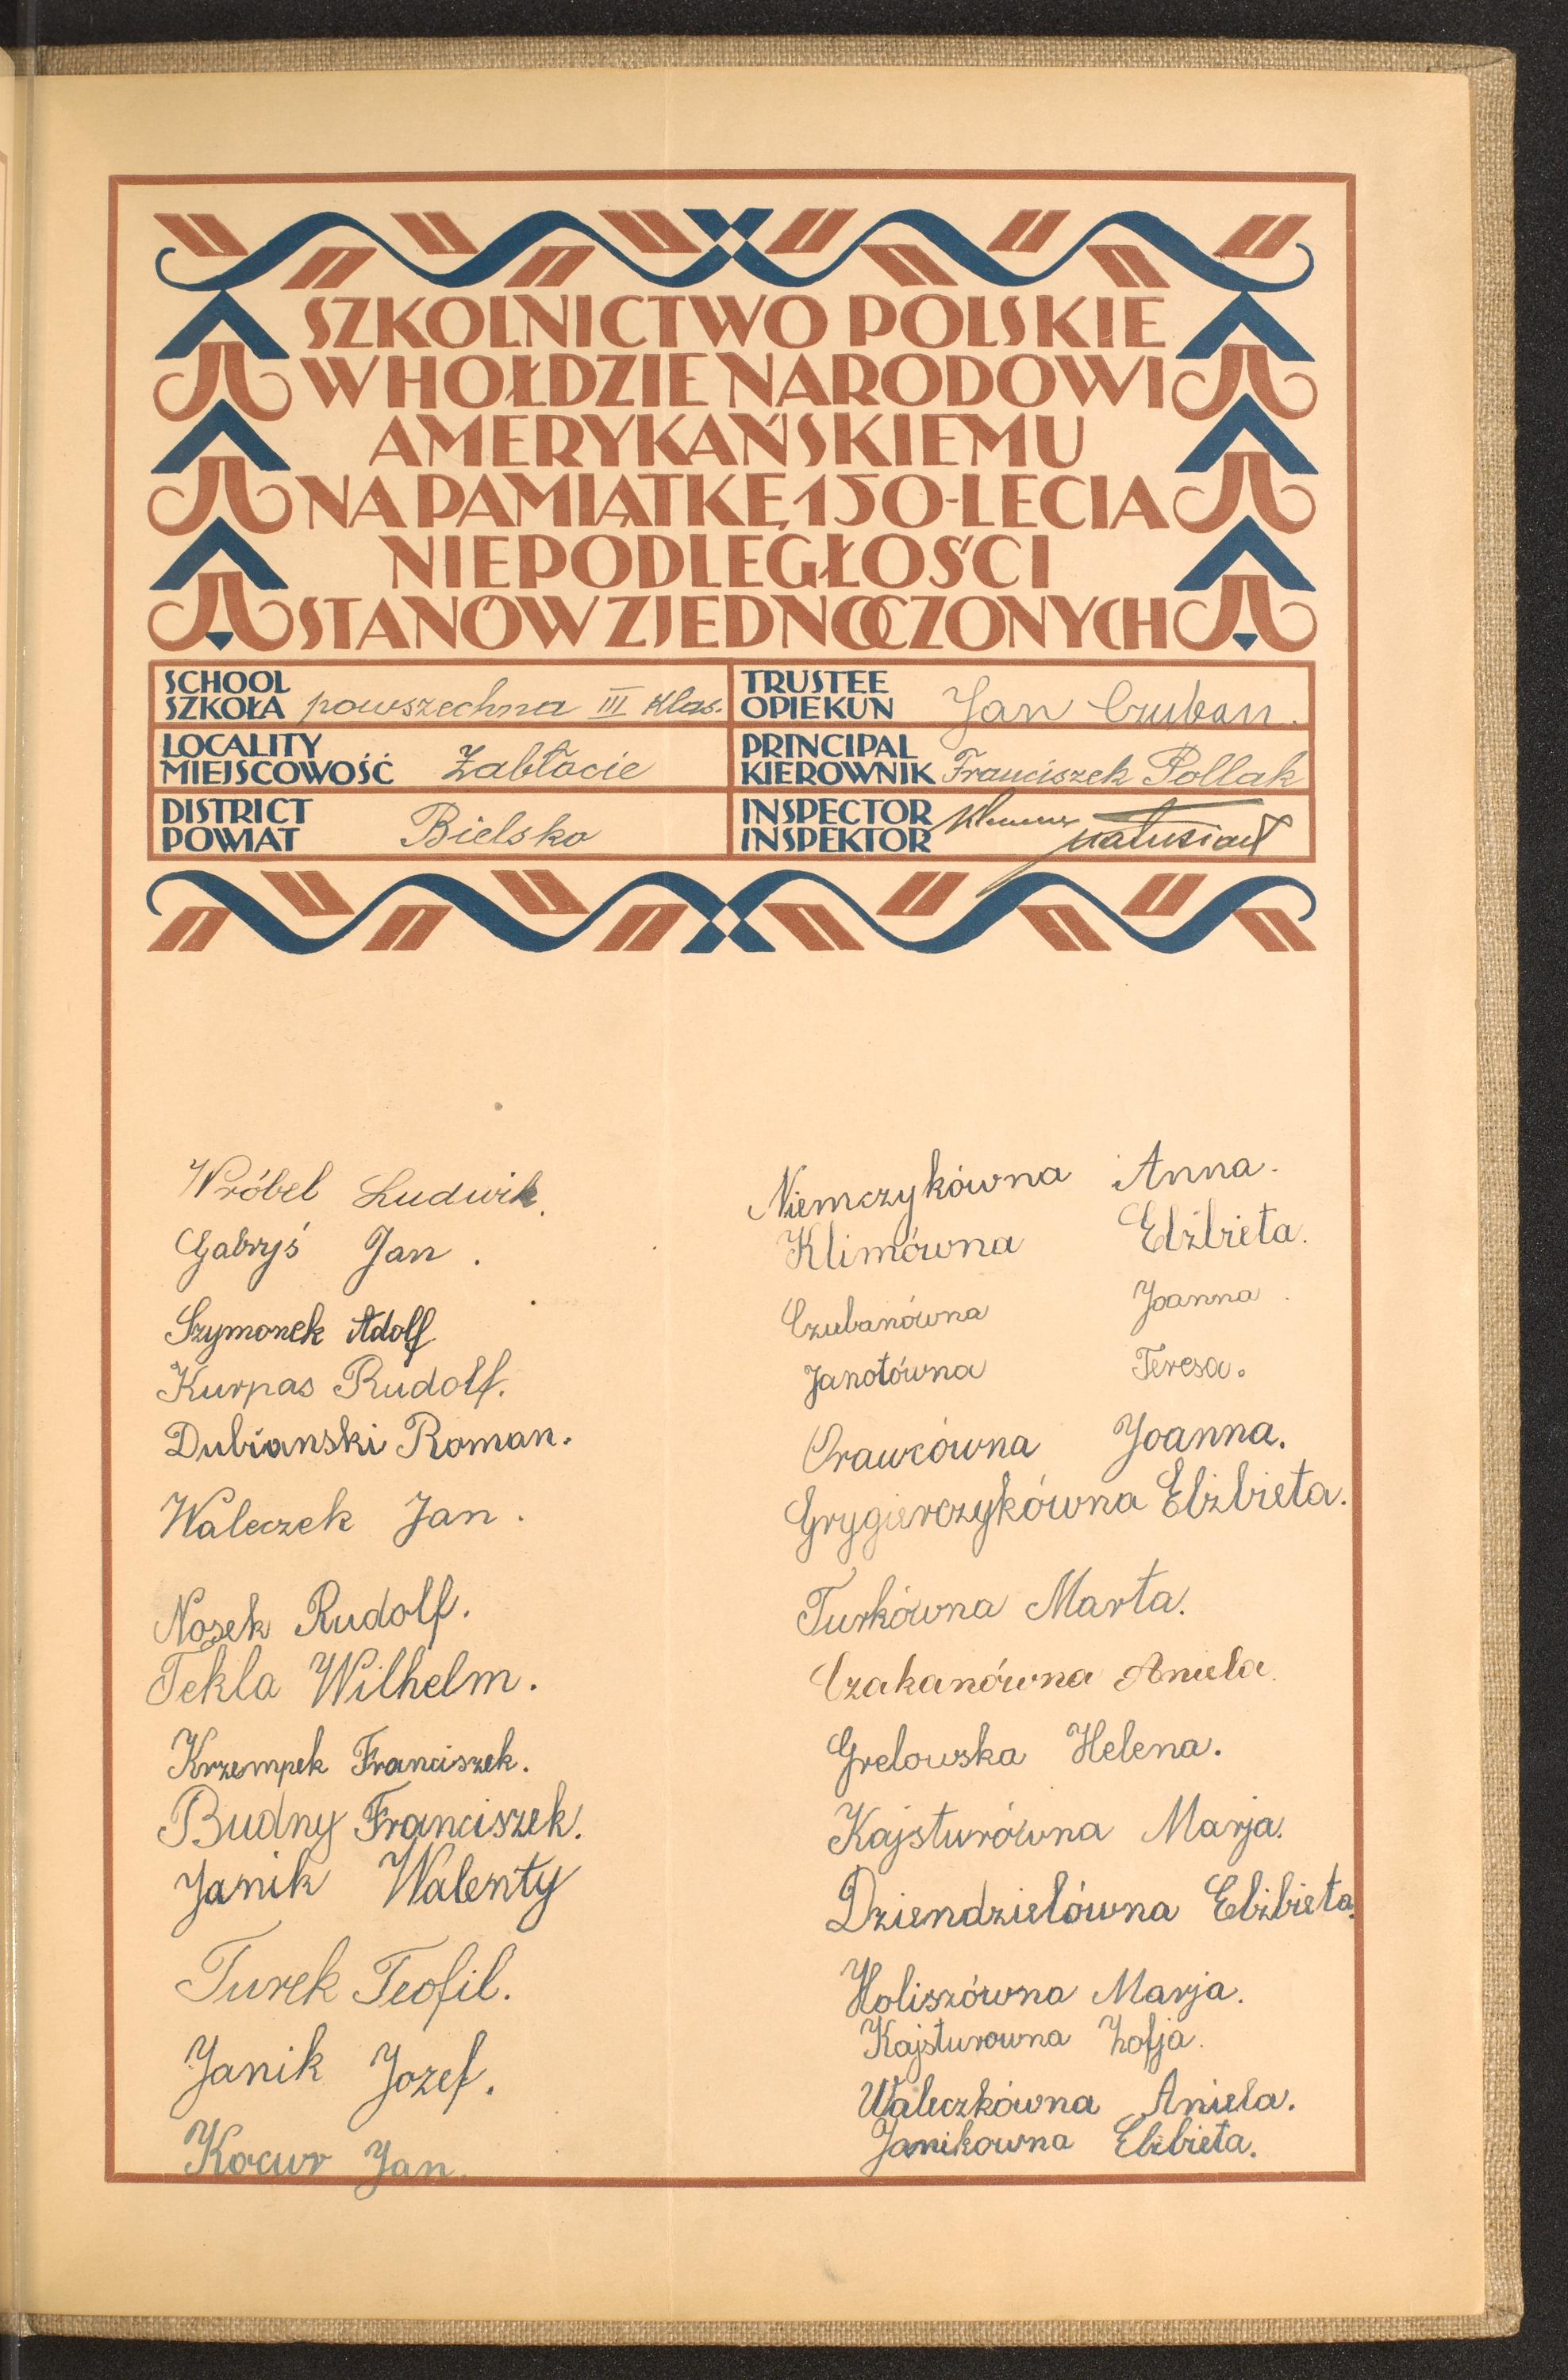 SZKOLNICTWO POLSKIE
W HOŁDZIE NARODOWI
AMERYKAŃSKIEMU
NA PAMIĄTKĘ 150-LECIA
NIEPODLEGŁOŚCI
STANÓW ZJEDNOCZONYCH
SCHOOL
SZKOŁA powszechna III klas.
TRUSTEE
OPIEKUN Jan Czuban.
LOCALITY
MIEJSCOWOŚĆ Zabłocie
PRINCIPAL
KIEROWNIK Franciszek Pollak
DISTRICT
POWIAT Bielsko
INSPECTOR
INSPEKTOR Matusiak
Wróbel Ludwik.
Gabryś Jan.
Szymonek Adolf
Kurpas Rudolf.
Dubianski Roman.
Waleczek Jan.
Nosek Rudolf.
Tekla Wilhelm.
Krzempek Franciszek.
Budny Franciszek.
Janik Walenty
Turek Teofil.
Janik Jozef.
Kocur Jan
Niemczykówna Anna.
Klimówna Elżbieta.
Czubanówna Joanna.
Janotówna Teresa.
Orawcówna Joanna.
Grygierczykówna Elżbieta.
Turkówna Marta.
Czakanówna Aniela.
Grelowska Helena.
Kajsturówna Marja.
Dziendzielówna Elżbieta.
Holiszówna Marja.
Kajsturowna Zofja.
Waleczkówna Aniela.
Janikowna Elżbieta.